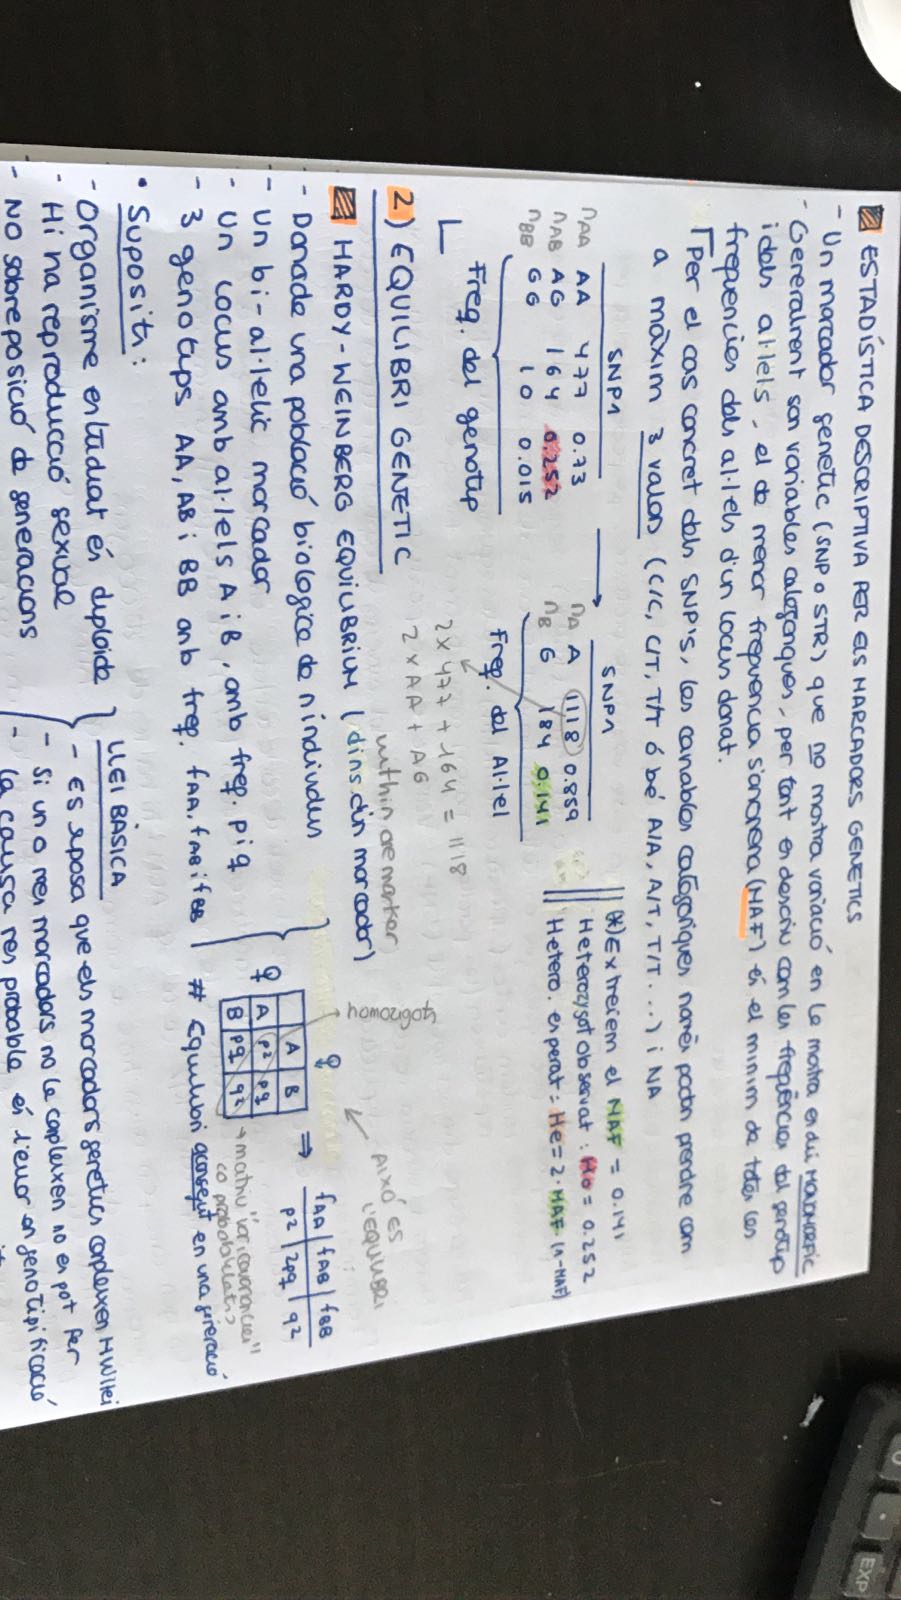 ESTADÍSTICA DESCRIPTIVA PER ELS MARCADORS GENETICS
- Un marcador genetic (SNP o STR) que no mostra variació en la mostra es diu MONOMORFIC
- Generalment son variables categoriques, per tant es descriu com les freqüències del genotip
i dels al·lels, el de menor frequencia s'anomena (MAF) és el minim de totes les
frequencies dels al·lels d'un locus donat.
Per el cas concret dels SNP'S, les variables categoriques només poden prendre com
a màxim 3 valors (C/C, C/T, T/T ó bé A/A, A/T, T/T ...) i NA
SNP1
nAA AA 477 0.73
nAB AG 164 0.252
nBB GG 10 0.015
Freq. del genotip
SNP1
nA A 1118 0.859
nB G 184 0.141
Freq. del Al·lel
2 x 477 + 164 = 1118
2 x AA + AG
(*) Extreiem el MAF = 0.141
Heterozygot observat: Ho = 0.252
Hetero. esperat: He = 2·MAF·(1-MAF)
2) EQUILIBRI GENETIC
within one marker
HARDY-WEINBERG EQUILIBRIUM (dins d'un marcador)
- Donade una població biologica de n individus
- Un bi-al·lelic marcador
- Un locus amb al·lels A i B, amb freq. p i q
- 3 genotips AA, AB i BB amb freq. fAA, fAB i fBB
homozogots
AIXÓ ES
l'EQUILIBRI
♀
♀
A B
A p2 pq
B pq q2
⇒
fAA fAB fBB
p2 2pq q2
matriu "var i covariancies"
co probabilitats
# Equilibri aconsegut en una generació
• Suposits:
- Organisme estudiat és diploide
- Hi ha reproducció sexual
- NO sobreposició de generacions
LLEI BÀSICA
- ES suposa que els marcadors genetics compleixen HW llei
- Si un o mes marcadors no la compleixen no es pot fer
- la causa mes probable és l'error en genotipificació
EXP